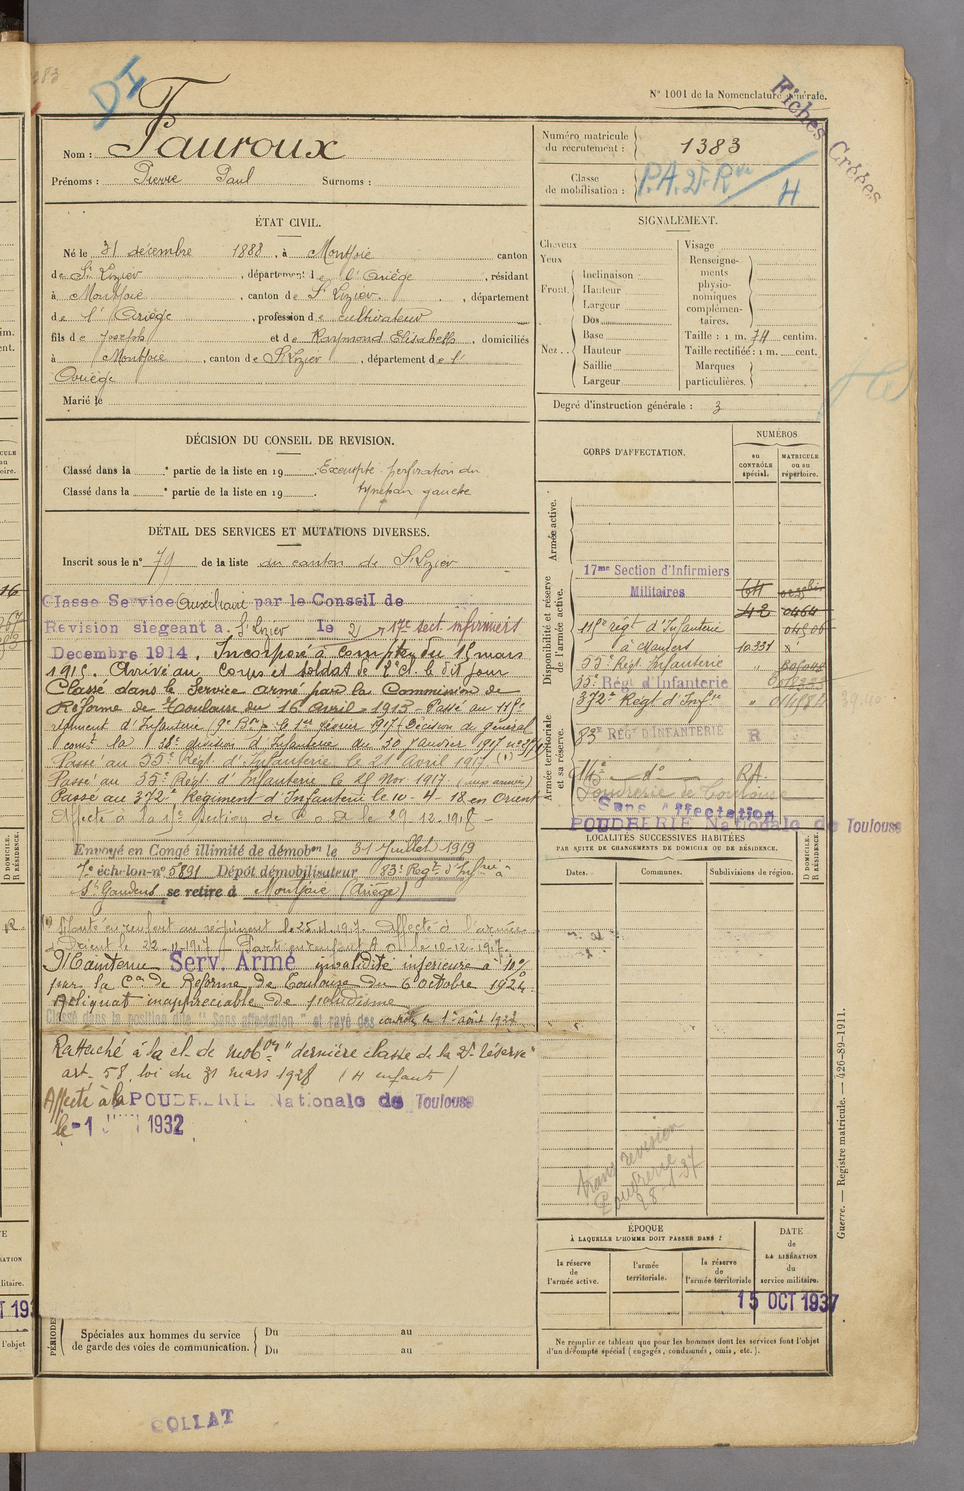 383
DI
N° 1001 de la Nomenclature générale.
Fiches Créées
Nom : Fauroux
Prénoms : Pierre Paul Surnoms :
Numéro matricule du recrutement : 1383
Classe de mobilisation : P.A. 2e Rve H
ÉTAT CIVIL.
Né le 31 décembre 1888, à Montfoie canton
de St Lizier, département de l'Ariège, résidant
à Montfoie, canton de St Lizier, département
de l'Ariège, profession de cultivateur
fils de Joseph et de Raymond Elisabeth, domiciliés
à Montfoie, canton de St Lizier, département de l'
Ariège
Marié le
SIGNALEMENT.
Cheveux
Yeux
Front. Inclinaison :
Hauteur
Largeur
Nez Dos
Base
Hauteur
Saillie
Largeur
Visage
Renseignements physionomiques complémentaires.
Taille : 1 m. 74 centim.
Taille rectifiée : 1 m. cent.
Marques particulières.
Degré d'instruction générale : 3
DÉCISION DU CONSEIL DE REVISION.
Classé dans la e partie de la liste en 19 Exempté perforation du
Classé dans la e partie de la liste en 19 tympan gauche
DÉTAIL DES SERVICES ET MUTATIONS DIVERSES.
Inscrit sous le n° 79 de la liste du canton de St Lizier
Classe Service Auxiliaire par le Conseil de
Revision siegeant a St Lizier le 2 17e sect infirmiers
Decembre 1914. Incorporé à compter du 15 mars
1915. Arrivé au Corps et soldat de 2e cl. le dit jour
Classé dans le Service armé par la Commission de
Réforme de Toulouse du 16 Avril 1915 Passé au 115e
régiment d'Infanterie le 1er février 1917 (Décision du général
comt la division d'Infanterie du 30 janvier 1917
Passé au 55e Régt d'Infanterie le 21 avril 1917 (1)
Passé au 35e Régt d'Infanterie le 28 Nov 1917 (aux armées)
Passé au 372e Régiment d'Infanterie le 10-4-18 en Orient
Affecté à la section de le 29-12-1918
Envoyé en Congé illimité de démobon le 31 Juillet 1919
7e échelon n° 5891 Dépôt démobilisateur 83e Régt d'Infrie à
St Gaudens se retire à Montfoie (Ariège)
(1) Monté en renfort au régiment le Affecté à l'armée
d'Orient le 22-11-1917 Parti en renfort A O le 10-12-1917.
Maintenu Serv. Armé invalidité inférieure à 10%
par la Con de Réforme de Toulouse du 6 octobre 1924
Reliquat inappréciable de paludisme
Classé dans la position dite "Sans affectation" et rayé des contrôles le 1er août 1927
Rattaché à la cl. de mobon "dernière classe de la 2e réserve"
art. 58, loi du 31 mars 1928 (4 enfants)
Affecté à la POUDRERIE Nationale de Toulouse
le -1 1932
CORPS D'AFFECTATION.
NUMÉROS
au CONTRÔLE spécial.
MATRICULE ou au répertoire.
Armée active.
Disponibilité et réserve de l'armée active.
17me Section d'Infirmiers
Militaires
42 0464
115e régt d'Infanterie 04506
10331 x
55e Régt Infanterie "
35e Régt d'Infanterie
372e Régt d'Infrie "
Armée territoriale et sa réserve.
83e REGT D'INFANTERIE R
14e do R.A.
Poudrerie de Toulouse
Sans affectation
POUDRERIE Nationale de Toulouse
LOCALITÉS SUCCESSIVES HABITÉES
PAR SUITE DE CHANGEMENTS DE DOMICILE OU DE RÉSIDENCE.
Dates. Communes. Subdivisions de région. D DOMICILE. R RÉSIDENCE.
revision
Poudrerie
ÉPOQUE
À LAQUELLE L'HOMME DOIT PASSER DANS :
la réserve de l'armée active.
l'armée territoriale.
la réserve de l'armée territoriale
DATE de LA LIBÉRATION du service militaire.
15 OCT 1937
Ne remplir ce tableau que pour les hommes dont les services font l'objet
d'un décompte spécial (engagés, condamnés, omis, etc.).
PÉRIODES
Spéciales aux hommes du service
de garde des voies de communication.
Du au
Du au
Guerre. — Registre matricule. — 426-89-1911.
COLLAT